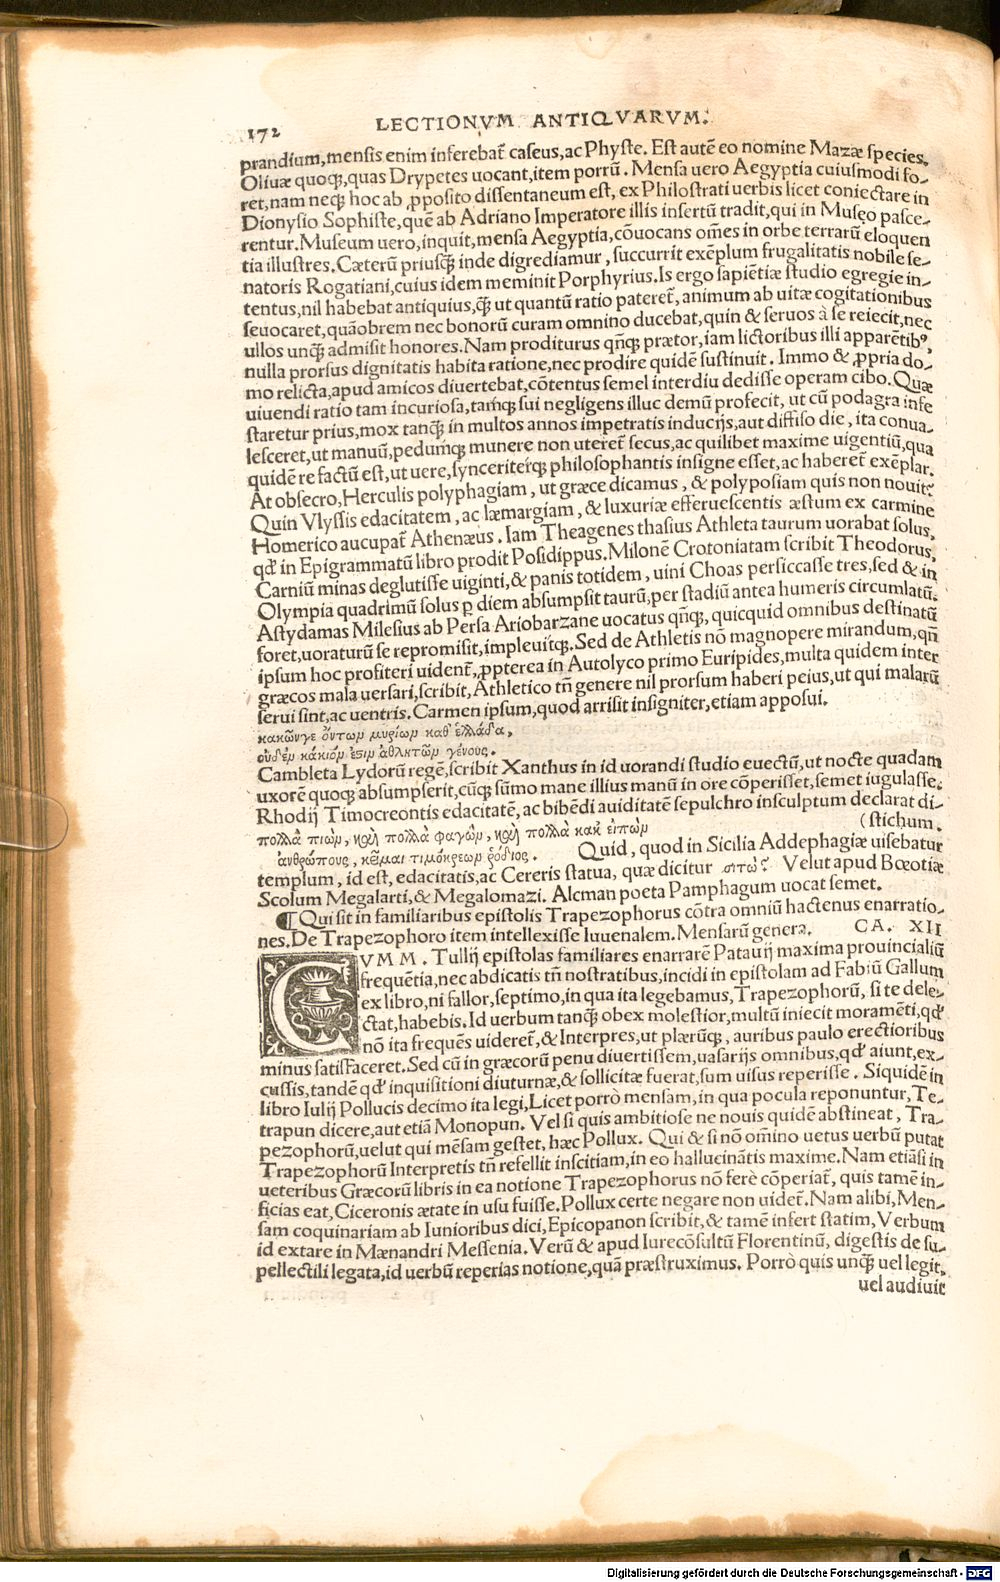 172 LECTIONVM ANTIQVARVM.
prandium, mensis enim inferebat̃ caseus, ac Physte. Est autē eo nomine Mazæ species.
Oliuæ quoq;, quas Drypetes uocant, item porrū. Mensa uero Aegyptia cuiusmodi fo-
ret, nam neq; hoc ab ꝓposito dissentaneum est, ex Philostrati uerbis licet coniectare in
Dionysio Sophiste, quē ab Adriano Imperatore illis insertū tradit, qui in Musęo pasce-
rentur. Museum uero, inquit, mensa Aegyptia, cōuocans om̃es in orbe terrarū eloquen
tia illustres. Cæterū priusq̃; inde digrediamur, succurrit exēplum frugalitatis nobile se-
natoris Rogatiani, cuius idem meminit Porphyrius. Is ergo sapiētiæ studio egregie in-
tentus, nil habebat antiquius, q̃; ut quantū ratio pateret̃, animum ab uitæ cogitationibus
seuocaret, quãobrem nec bonorū curam omnino ducebat, quin & seruos à se reiecit, nec
ullos unq̃; admisit honores. Nam proditurus qñq; prætor, iam lictoribus illi apparētibꝰ,
nulla prorsus dignitatis habita ratione, nec prodire quidē sustinuit. Immo & ꝓpria do-
mo relicta, apud amicos diuertebat, cōtentus semel interdiu dedisse operam cibo. Quæ
uiuendi ratio tam incuriosa, tamq; sui negligens illuc demū profecit, ut cū podagra infe
staretur prius, mox tanq̃; in multos annos impetratis inducijs, aut diffiso die, ita conua-
lesceret, ut manuū, pedumq; munere non uteret̃ secus, ac quilibet maxime uigentiū, qua
quidē re factū est, ut uere, synceriterq; philosophantis insigne esset, ac haberet̃ exēplar.
At obsecro, Herculis polyphagiam, ut græce dicamus, & polyposiam quis non nouit?
Quin Vlyssis edacitatem, ac læmargiam, & luxuriæ efferuescentis æstum ex carmine
Homerico aucupat̃ Athenæus. Iam Theagenes thasius Athleta taurum uorabat solus,
qđ in Epigrammatū libro prodit Posidippus. Milonē Crotoniatam scribit Theodorus,
Carniū minas deglutisse uiginti, & panis totidem, uini Choas persiccasse tres, sed & in
Olympia quadrimū solus ꝑ diem absumpsit taurū, per stadiū antea humeris circumlatū.
Astydamas Milesius ab Persa Ariobarzane uocatus qñq;, quicquid omnibus destinatū
foret, uoraturū se repromisit, impleuitq;. Sed de Athletis nō magnopere mirandum, qñ
ipsum hoc profiteri uident̃, ꝓpterea in Autolyco primo Euripides, multa quidem inter
græcos mala uersari, scribit, Athletico tñ genere nil prorsum haberi peius, ut qui malarū
serui sint, ac uentris. Carmen ipsum, quod arrisit insigniter, etiam apposui.
κακῶνγε ὄντωμ μυρίωμ καθ' ἑλλάδα,
οὐδὲμ κάκιόμ ἐςιμ ἀθλητῶμ γένους.
Cambleta Lydorū regē, scribit Xanthus in id uorandi studio euectū, ut nocte quadam
uxorē quoq; absumpserit, cūq; sūmo mane illius manū in ore cōperisset, semet iugulasse.
Rhodij Timocreontis edacitatē, ac bibēdi auiditatē sepulchro insculptum declarat di-
πολλὰ πιὼμ, καὶ πολλὰ φαγὼμ, καὶ πολλὰ κακ' εἰπὼμ (stichum.
ἀνθρώπους, κεῖμαι τιμόκρεωμ ῥόδιος. Quid, quod in Sicilia Addephagiæ uisebatur
templum, id est, edacitatis, ac Cereris statua, quæ dicitur σιτώ? Velut apud Bœotiæ
Scolum Megalarti, & Megalomazi. Alcman poeta Pamphagum uocat semet.
¶ Qui sit in familiaribus epistolis Trapezophorus cōtra omniū hactenus enarratio-
nes. De Trapezophoro item intellexisse Iuuenalem. Mensarū genera. CA. XII
CVMM. Tullij epistolas familiares enarrarē Patauij maxima prouincialiū
frequētia, nec abdicatis tñ nostratibus, incidi in epistolam ad Fabiū Gallum
ex libro, ni fallor, septimo, in qua ita legebamus, Trapezophorū, si te dele-
ctat, habebis. Id uerbum tanq̃; obex molestior, multū iniecit moramēti, qđ
nō ita frequēs uideret̃, & Interpres, ut plærūq;, auribus paulo erectioribus
minus satisfaceret. Sed cū in græcorū penu diuertissem, uasarijs omnibus, qđ aiunt, ex-
cussis, tandē qđ inquisitioni diuturnæ, & sollicitæ fuerat, sum uisus reperisse. Siquidē in
libro Iulij Pollucis decimo ita legi, Licet porrò mensam, in qua pocula reponuntur, Te-
trapun dicere, aut etiā Monopun. Vel si quis ambitiose ne nouis quidē abstineat, Tra-
pezophorū, uelut qui mēsam gestet, hæc Pollux. Qui & si nō om̃ino uetus uerbū putat
Trapezophorū Interpretis tñ refellit inscitiam, in eo hallucinātis maxime. Nam etiāsi in
ueteribus Græcorū libris in ea notione Trapezophorus nō ferè cōperiat̃, quis tamē in-
ficias eat, Ciceronis ætate in usu fuisse. Pollux certe negare non uidet̃. Nam alibi, Men-
sam coquinariam ab Iunioribus dici, Epicopanon scribit, & tamē infert statim, Verbum
id extare in Mænandri Messenia. Verū & apud Iurecōsultū Florentinū, digestis de su-
pellectili legata, id uerbū reperias notione, quā præstruximus. Porrò quis unq̃; uel legit,
uel audiuit
Digitalisierung gefördert durch die Deutsche Forschungsgemeinschaft - DFG